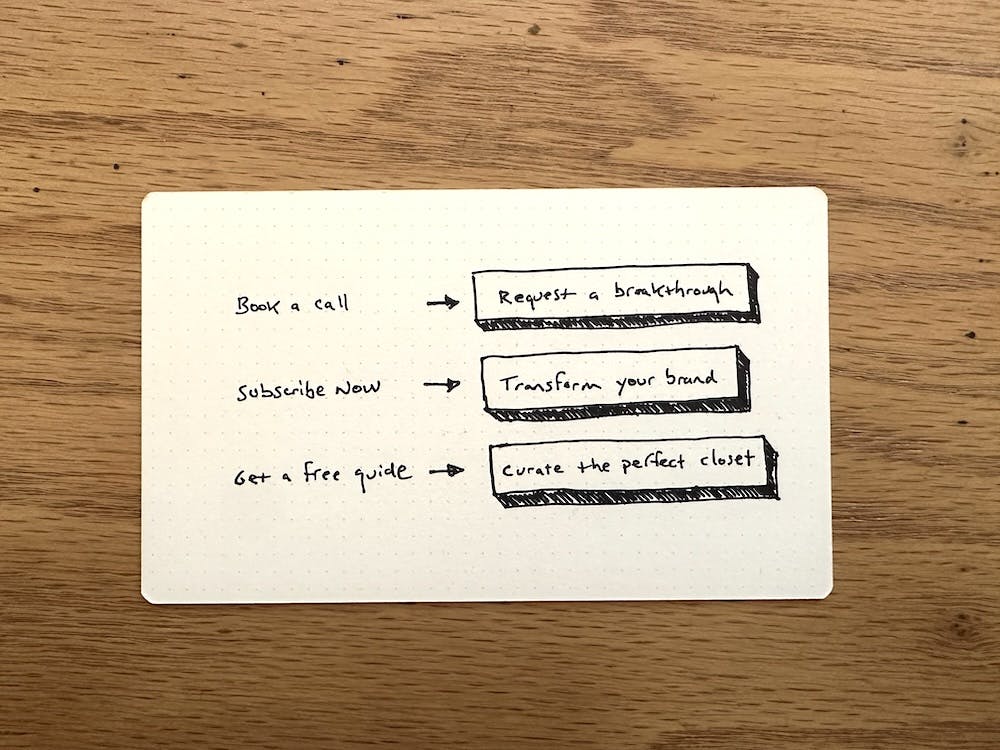 Book a call → Request a breakthrough
Subscribe Now → Transform your brand
Get a free guide → Curate the perfect closet